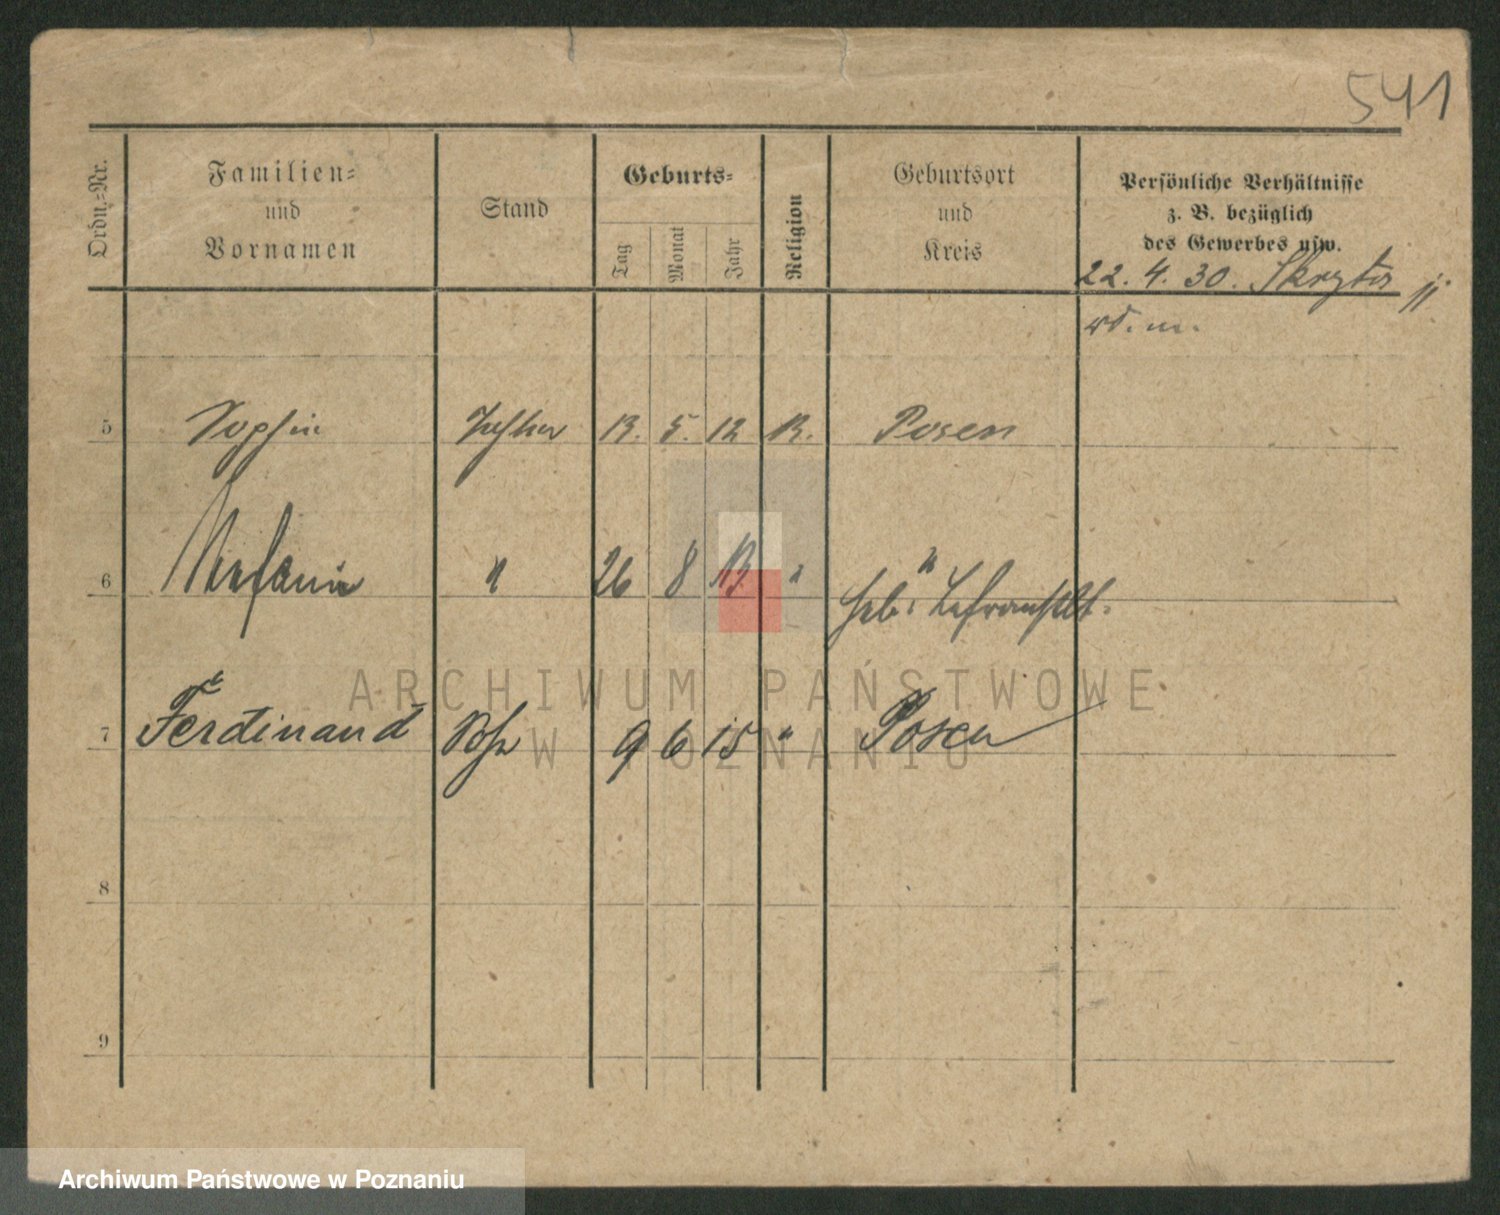 541
Ordn.-Nr.
Familien-
und
Vornamen
Stand
Geburts-
Tag Monat Jahr
Religion
Geburtsort
und
Kreis
Persönliche Verhältnisse
z. B. bezüglich
des Gewerbes usw.
22. 4. 30.
wd. m.
5 Sophie Tochter 13. 5. 12 R. Posen
6 Stefania " 26 8 13 " "
Heb. Lehranstalt.
7 Ferdinand Sohn 9 6 15 " Posen
8
9
ARCHIWUM PAŃSTWOWE
W POZNANIU
Archiwum Państwowe w Poznaniu